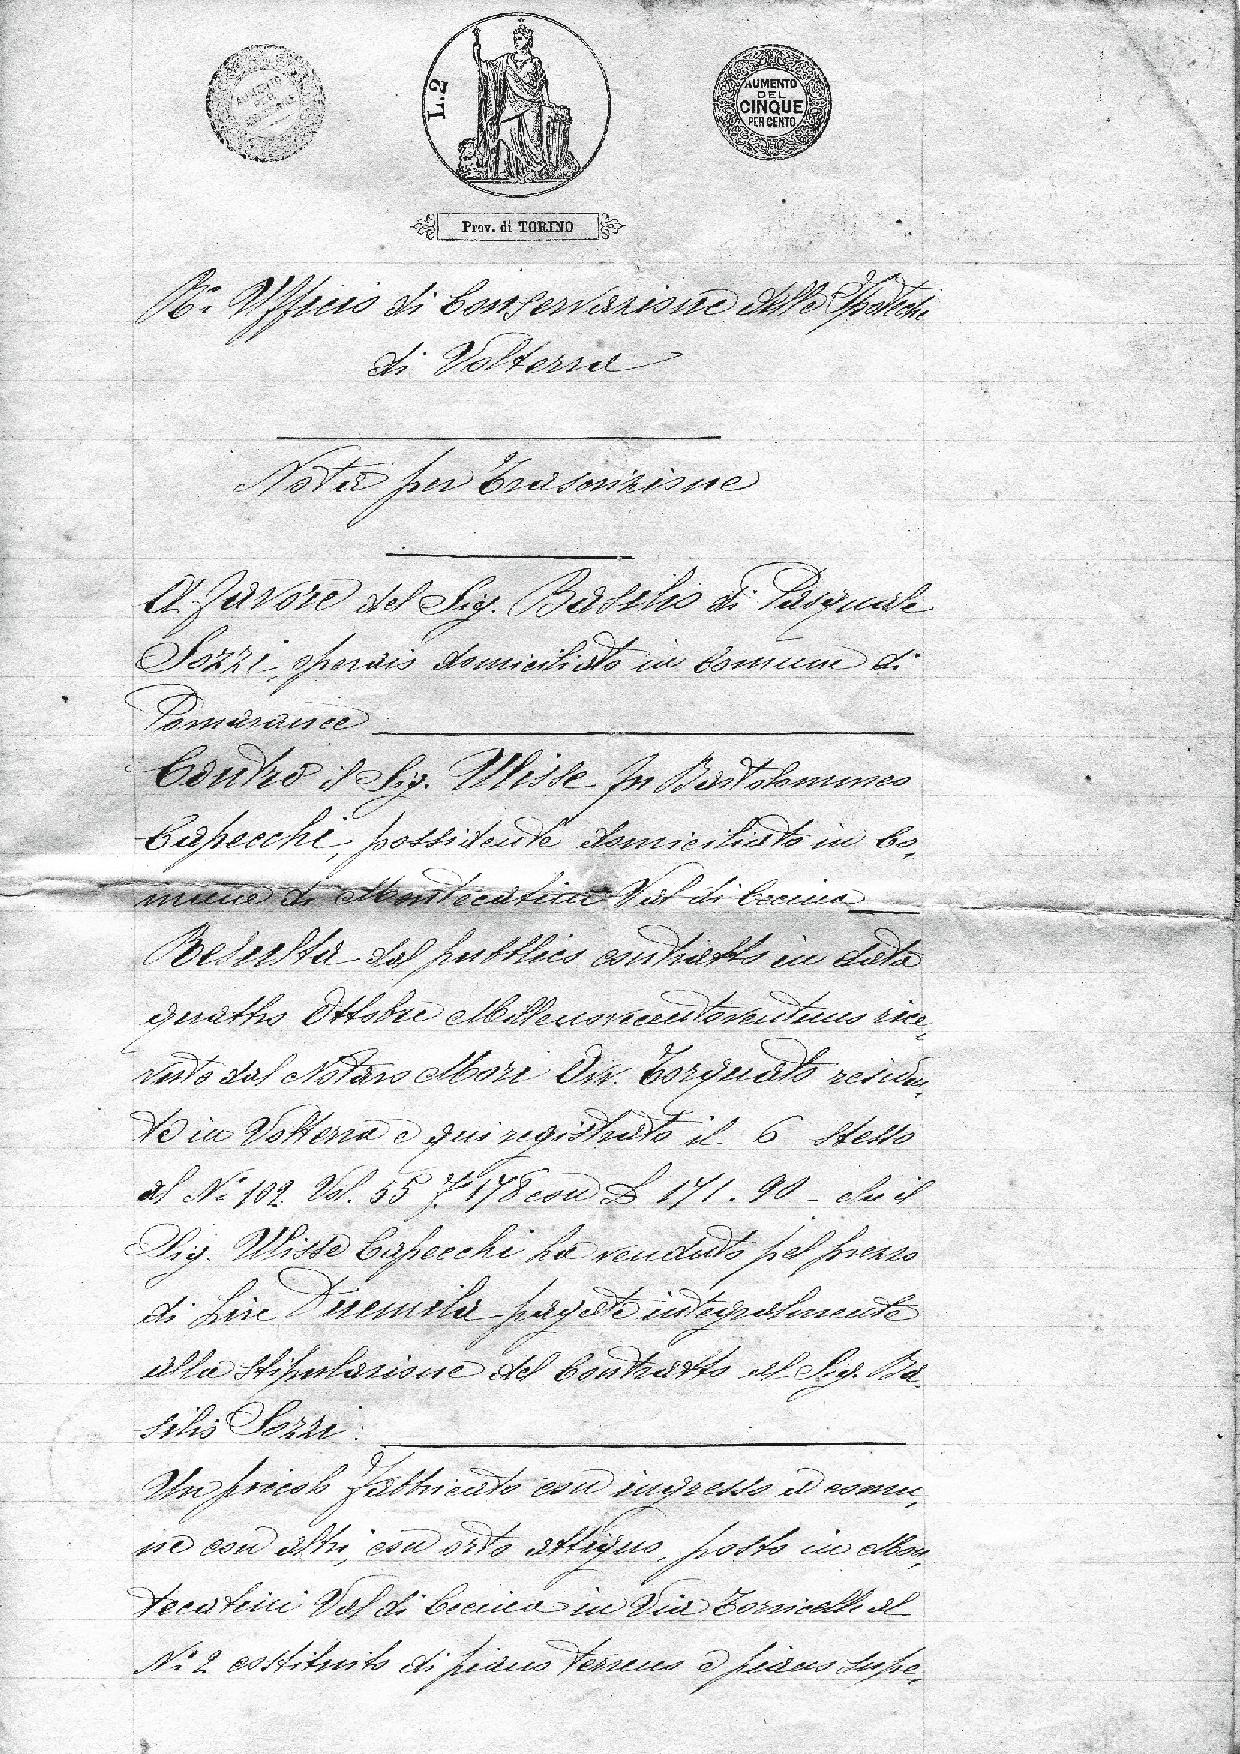 L. 2
AUMENTO
DEL
CINQUE
PER CENTO
Prov. di TORINO
R.º Ufficio di Conservazione delle Ipoteche
di Volterra
Nota per Trascrizione
A favore del Sig. Basilio di Pasquale
Sozzi, operaio domiciliato in Comune di
Pomarance
Contro il Sig. Ulisse fu Bartolommeo
Capecchi, possidente domiciliato in Co,
mune di Montecatini Val di Cecina
Resulta dal pubblico contratto in data
quattro Ottobre Millenovecentoventuno rice,
vuto dal Notaro Mori Dr. Torquato residen,
te in Volterra e qui registrato il 6 stesso
al Nº 102 Vol. 55 fº 178 con L 171.90 - che il
Sig. Ulisse Capecchi ha venduto pel prezzo
di Lire Duemila pagate integralmente
alla stipulazione del Contratto al Sig. Ba,
silio Sozzi:
Un piccolo fabbricato con ingresso a comu,
ne con altri, con orto attiguo, posto in Mon,
tecatini Val di Cecina in Via Torricelli al
Nº 2 costituito di piano terreno e piano supe,